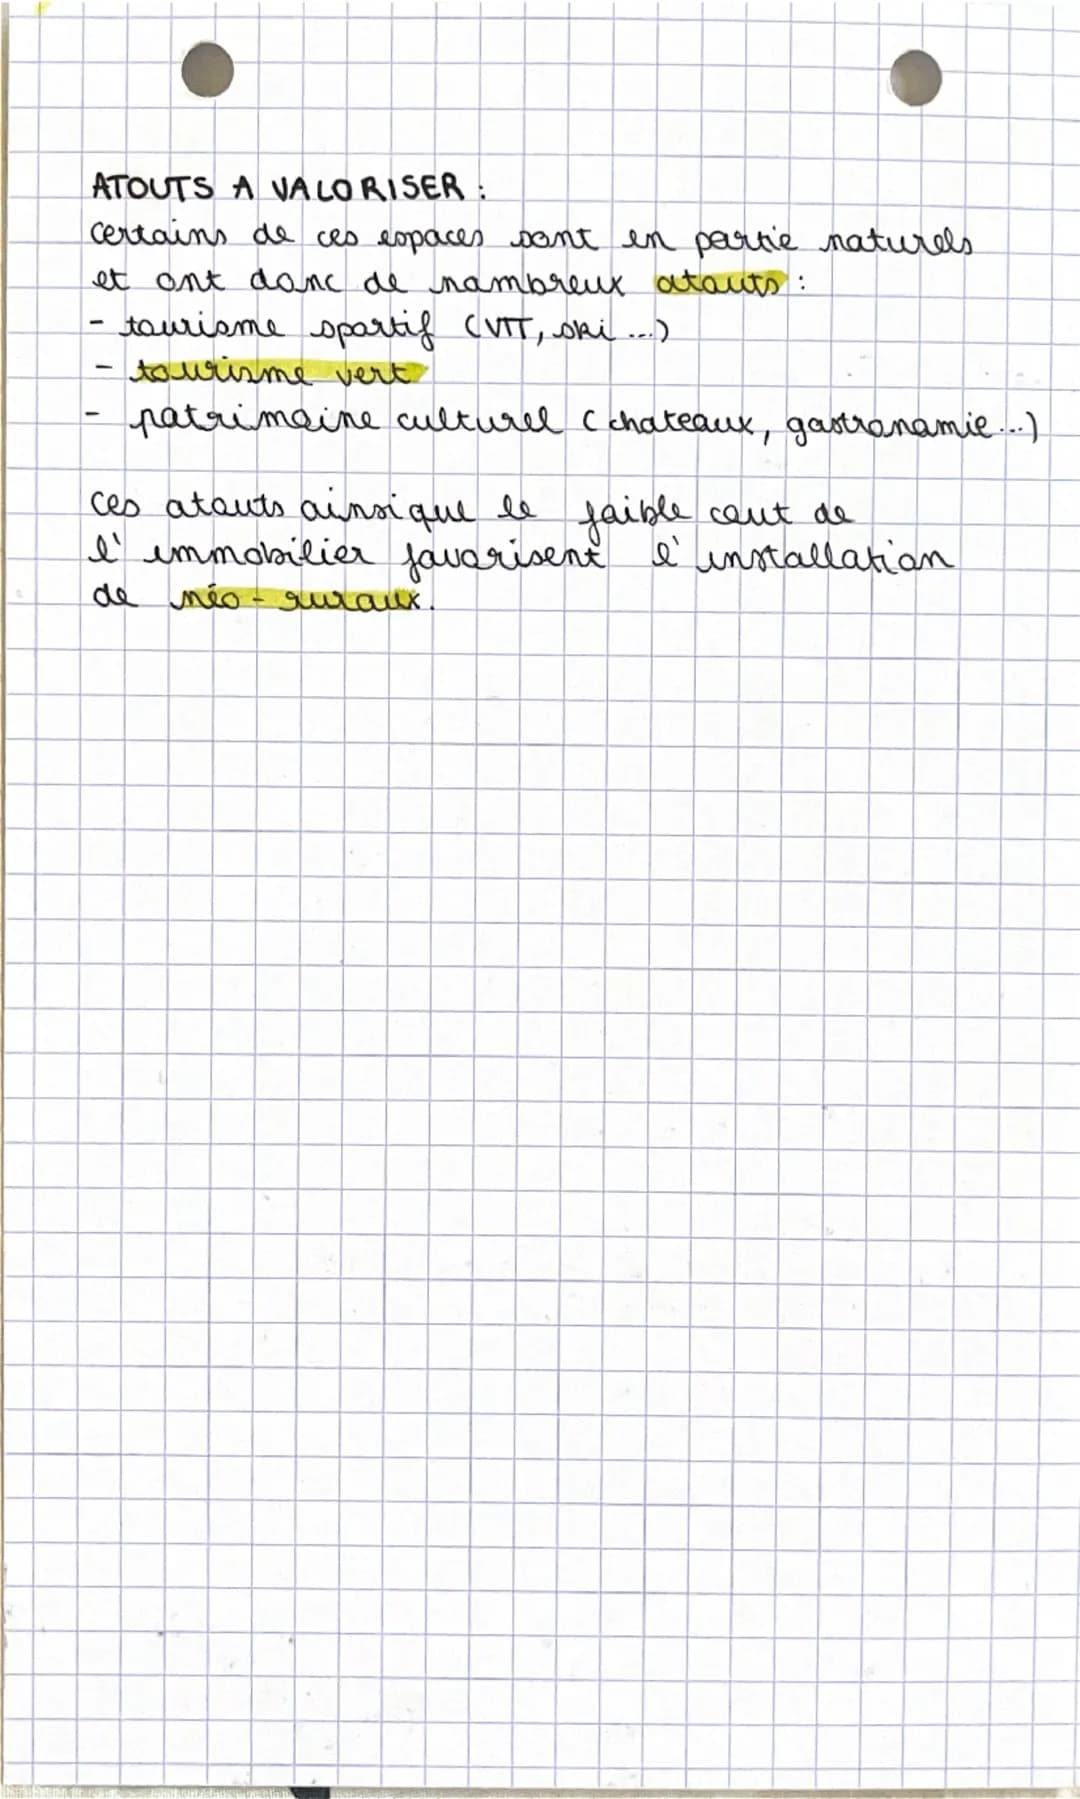 ATOUTS A VALORISER :
certains de ces espaces sont en partie naturels
et ont donc de nombreux atouts :
- tourisme sportif (VTT, ski ...)
- tourisme vert
- patrimoine culturel (chateaux, gastronomie ...)
ces atouts ainsi que le faible cout de
l'immobilier favorisent l'installation
de néo-ruraux.